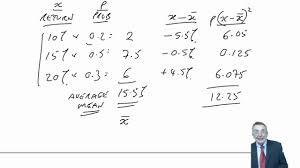 x P x - x̄ P(x - x̄)²
RETURN PROB
10% × 0.2 = 2 -5.5% 6.05
15% × 0.5 = 7.5 -0.5% 0.125
20% × 0.3 = 6 +4.5% 6.075
AVERAGE 15.5% 12.25
MEAN x̄